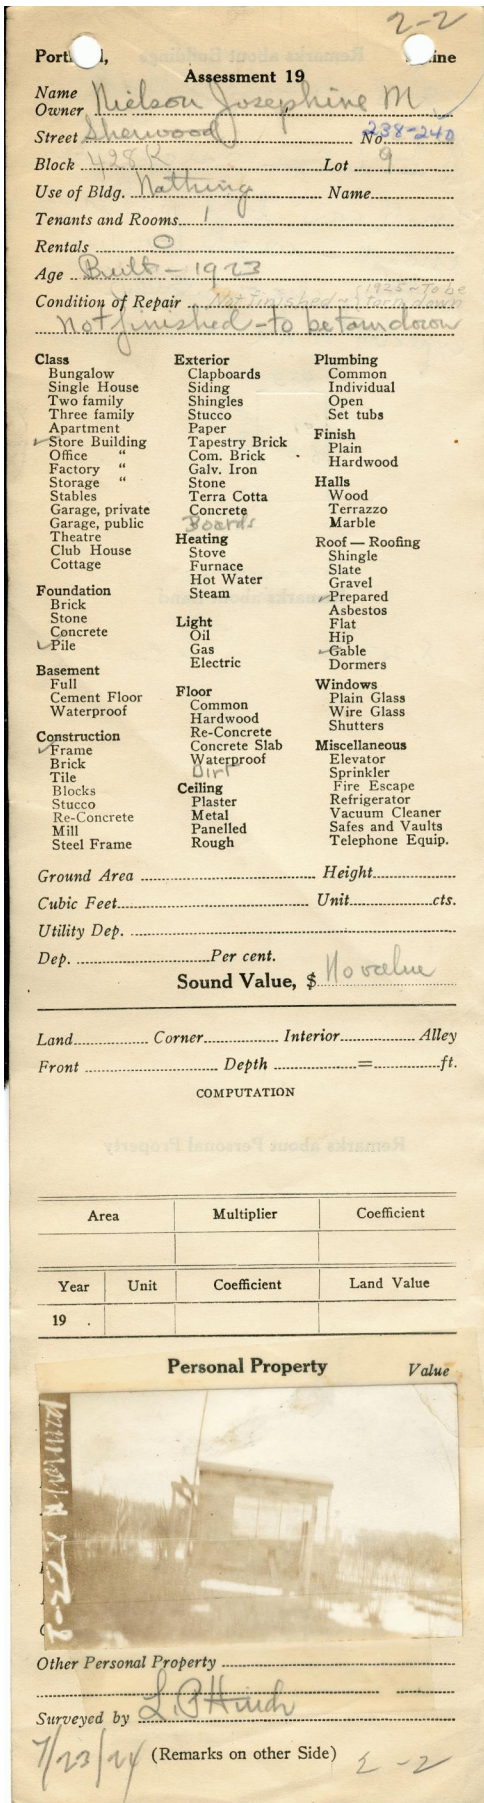 2-2
Portl d, Maine
Assessment 19
Name
Owner Nielson Josephine M.
Street Sherwood No. 238-240
Block 428K Lot 9
Use of Bldg. Nothing Name
Tenants and Rooms 1
Rentals 0
Age Built - 1923
Condition of Repair Not finished - { 1925 - To be torn down
Not finished - to be torn down
Class
Bungalow
Single House
Two family
Three family
Apartment
✓ Store Building
Office "
Factory "
Storage "
Stables
Garage, private
Garage, public
Theatre
Club House
Cottage
Foundation
Brick
Stone
Concrete
✓ Pile
Basement
Full
Cement Floor
Waterproof
Construction
✓ Frame
Brick
Tile
Blocks
Stucco
Re-Concrete
Mill
Steel Frame
Exterior
Clapboards
Siding
Shingles
Stucco
Paper
Tapestry Brick
Com. Brick
Galv. Iron
Stone
Terra Cotta
Concrete
Boards
Heating
Stove
Furnace
Hot Water
Steam
Light
Oil
Gas
Electric
Floor
Common
Hardwood
Re-Concrete
Concrete Slab
Waterproof
Dirt
Ceiling
Plaster
Metal
Panelled
Rough
Plumbing
Common
Individual
Open
Set tubs
Finish
Plain
Hardwood
Halls
Wood
Terrazzo
Marble
Roof — Roofing
Shingle
Slate
Gravel
✓ Prepared
Asbestos
Flat
Hip
✓ Gable
Dormers
Windows
Plain Glass
Wire Glass
Shutters
Miscellaneous
Elevator
Sprinkler
Fire Escape
Refrigerator
Vacuum Cleaner
Safes and Vaults
Telephone Equip.
Ground Area Height
Cubic Feet Unit cts.
Utility Dep.
Dep. Per cent.
Sound Value, $ No value
Land Corner Interior Alley
Front Depth = ft.
COMPUTATION
Area Multiplier Coefficient
Year Unit Coefficient Land Value
19 .
Personal Property Value
Other Personal Property
Surveyed by L.P. Hinch
7/23/24 (Remarks on other Side) 2 -2